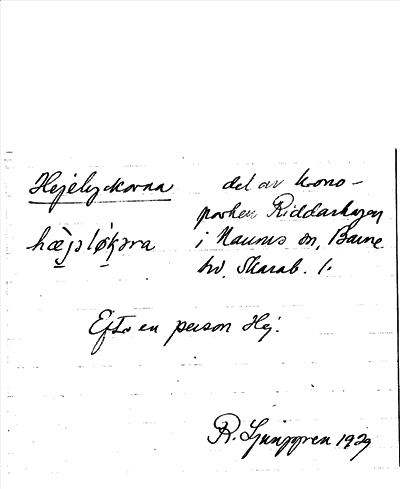 Hejelyckorna
hæ̀jəlǿkəra
del av krono-
parken Riddarhagen
i Naums sn, Barne
hd. Skarab. l.
Efter en person Hej.
R. Ljunggren 1929